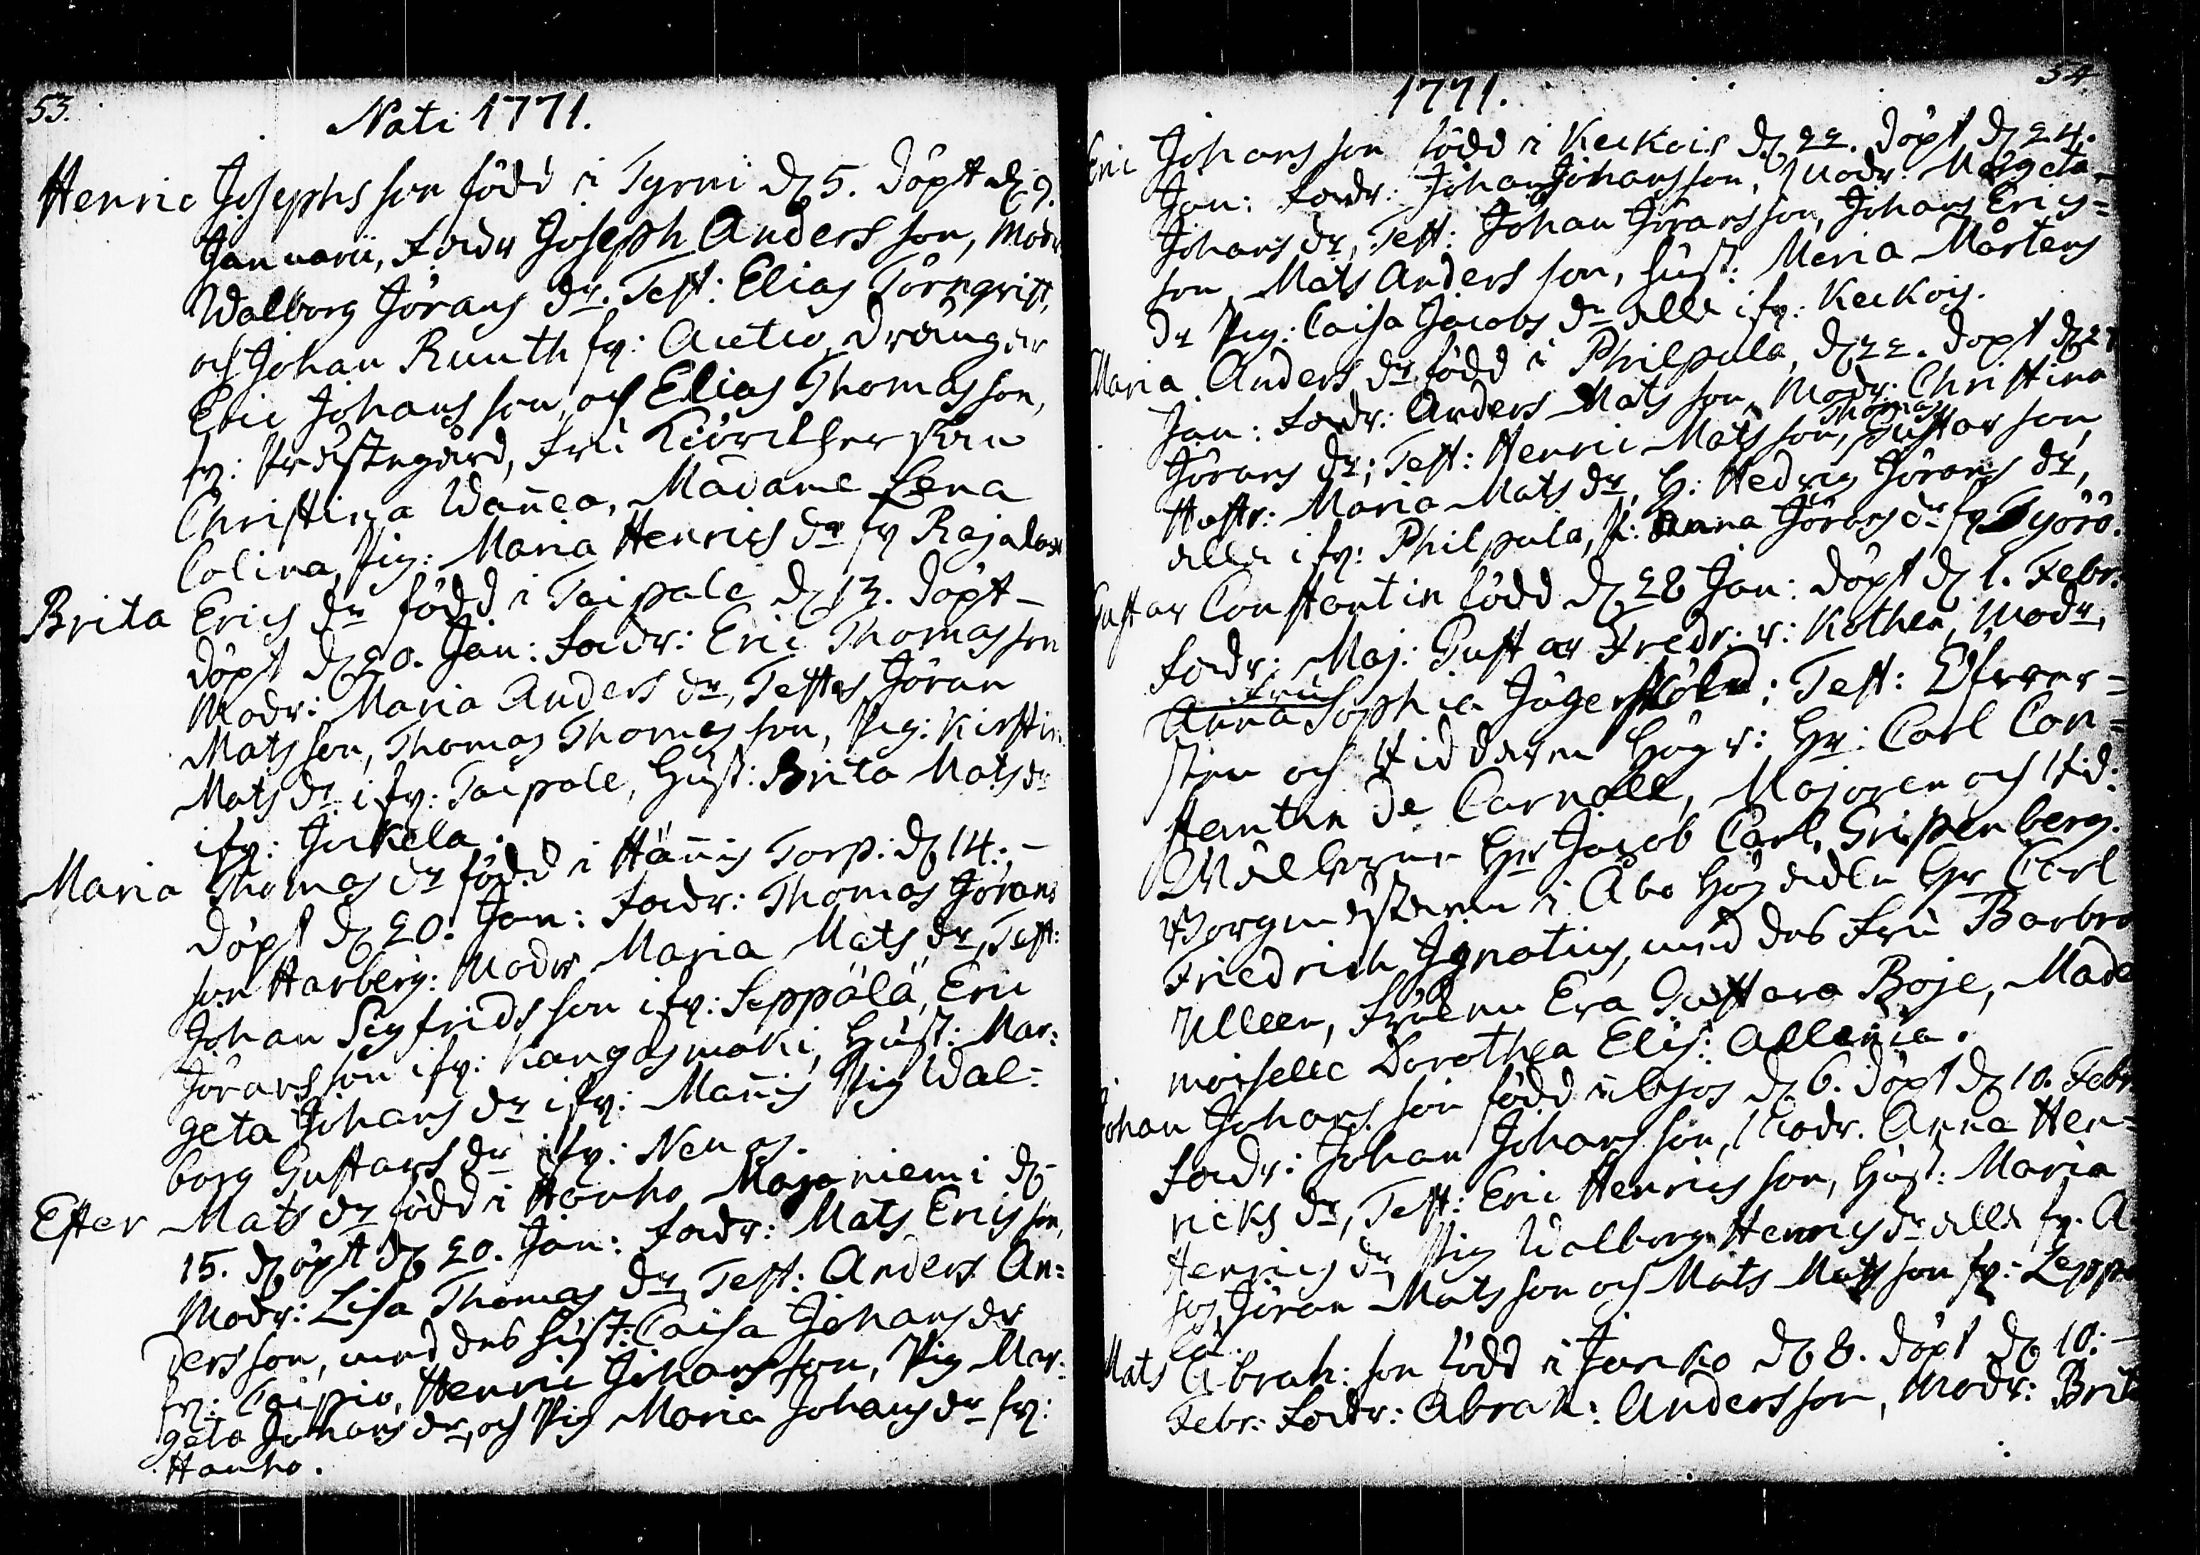 53.
Nati 1771.
Henric Josephs son född i Tyrni d. 5. döpt d. 9.
Januarii, Fadr Joseph Anders son, Modr
Walborg Jörans dr. Test: Elias Törnqvist,
och Johan Ruuth fr: Autio, Drängar
Eric Johans son, och Elias Thomas son,
fr: Prästegård, Fru
Christina Wanæa, Madame Lena
Colina, Pig: Maria Henrics dr fr Rajalax
Brita Erics dr född i Taipale d. 13. döpt –
döpt d. 20. Jan: Fadr: Eric Thomas son
Modr: Maria Anders dr, Testes Jöran
Mats son, Thomas Thomas son, Pig: Kirstin
Mats dr ifr: Taipale, Hust: Brita Mats dr
ifr: Jukela.
Maria Thomas dr född i Hännis Torp: d. 14. –
döpt d. 20. Jan: Fadr: Thomas Jörans
son Harberg: Modr Maria Mats dr, Test:
Johan Sigfrids son ifr: Seppälä, Eric
Jörans son ifr: Kangasmäki, Hust: Mar:
geta Johans dr ifr: Männis Pig Wal:
borg Gustavs dr ifr:
Ester Mats dr född i Hauho Majaniemi d. –
15. döpt d. 20. Jan: Fadr: Mats Erics son,
Modr: Lisa Thomas dr, Test: Anders An:
ders son, med des Hust: Caisa Johans dr
fr: Taipio, Henric Johans son, Pig Mar:
geta Johans dr, och Pig Maria Johans dr fr:
Hauho.
54
1771.
Eric Johans son född i Keckois d. 22. döpt d. 24.
Jan: Fadr: Johan Johans son, Modr: Margeta
Johans dr, Test: Johan Jörans son, Johan Erics=
son Mats Anders son, Hust: Maria Mårtens
dr Pig: Caisa Jacobs dr alla ifr: Keckois.
Maria Anders dr född i Philpula, d. 22. döpt d. 27
Jan: Fadr: Anders Mats son, Modr: Christina
Thomas
Jörans dr; Test: Henric Mats son, Gustav son,
Hustr: Maria Mats dr, H: Hedvig Jörans dr,
alla ifr: Philpula, P: Anna Jörans dr fr Työrö.
Gustav Constantin född d. 28 Jan: döpt d. 1. Febr:
Fadr: Maj: Gustav Fredr: v: Kothen, Modr,
Fru
Anna Sophia Jägerskiöld; Test: Öfver=
sten och Riddaren Högv: Hr: Carl Con=
stantin de Carnall, Majoren och Rid:
Wälborne Hr Jacob Carl Gripenberg.
Borgmästaren i Åbo Högädle Hr Carl
Friedrich Ignatius, med des Fru Barbro
Ulleen, Fröken Eva Gustava Boje, Made
moiselle Dorothea Elis: Allenia.
Johan Johans son född i d. 6. döpt d. 10. Febr
Fadr: Johan Johans son, Modr. Anna Hen=
ricks dr, Test: Eric Henrics son, Hust: Maria
Henrics dr Pig Walborg Henrics dr alla fr. A
Jöran Mats son och Mats Mats son fr: Leppä
lä.
Mats Abrah: son född i d. 8. döpt d. 10. –
Febr: Fadr: Abrah: Anders son, Modr: Brita